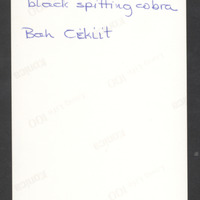 black spitting cobra
Bah Cekiit